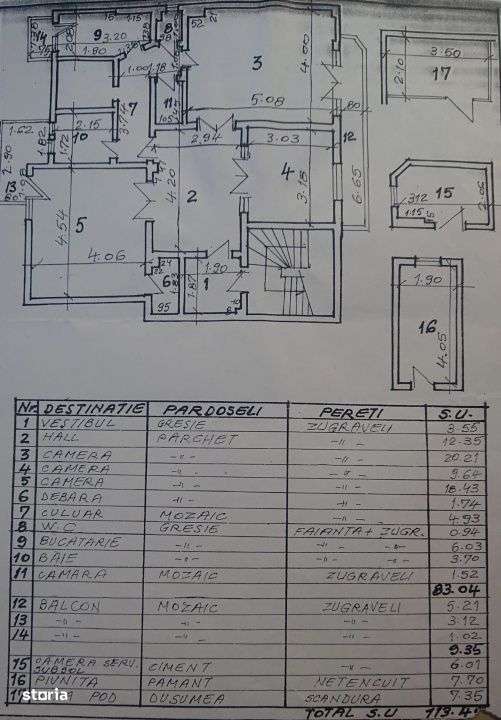 14
9
3.20
1.80
8
52
3
4.00
5.08
3.50
2.10
17
1.00
1.18
7
11
105
2.94
80
12
10
2.15
1.72
1.82
1.62
2.90
13
3.03
4
3.18
6.65
2
4.20
5
4.54
4.06
15
312
1.15
2.06
6
22
24
1.83
95
1
1.90
1.87
1.90
16
4.05
Nr. DESTINATIE PARDOSELI PERETI S.U.
1 VESTIBUL GRESIE ZUGRAVELI 3.55
2 HALL PARCHET -"- 12.35
3 CAMERA -"- -"- 20.21
4 CAMERA -"- -"- 9.64
5 CAMERA -"- -"- 18.43
6 DEBARA -"- -"- 1.74
7 CULUAR MOZAIC -"- 4.93
8 W.C GRESIE FAIANTA + ZUGR. 0.94
9 BUCATARIE -"- -"- -"- 6.03
10 BAIE -"- -"- -"- 3.70
11 CAMARA MOZAIC ZUGRAVELI 1.52
83.04
12 BALCON MOZAIC ZUGRAVELI 5.21
13 -"- -"- -"- 3.12
14 -"- -"- -"- 1.02
9.35
15 CAMERA SERV. SUBSOL CIMENT -"- 6.01
16 PIVNITA PAMANT NETENCUIT 7.70
17 POD DUSUMEA SCANDURA 7.35
TOTAL S.U 113.4
storia